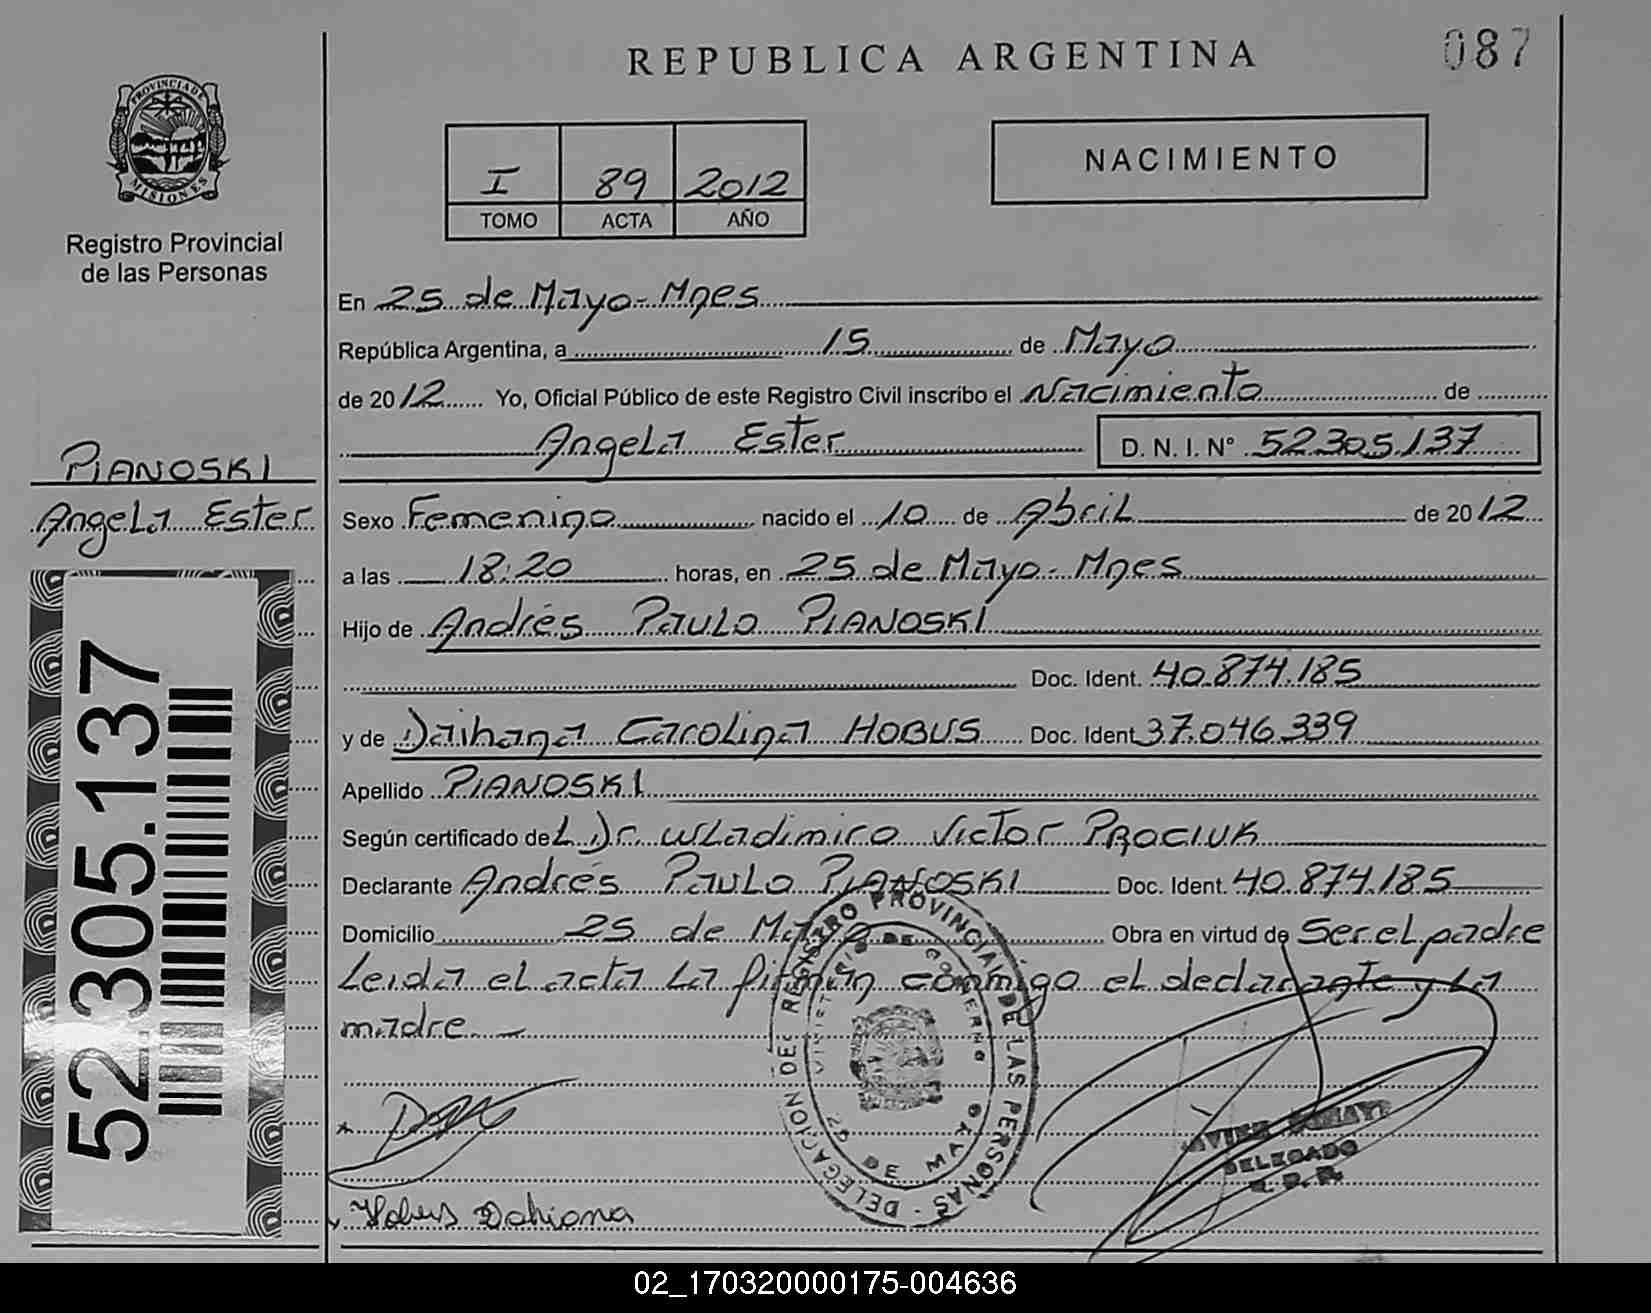 REPUBLICA ARGENTINA
087
PROVINCIA DE
MISIONES
Registro Provincial
de las Personas
I 89 2012
TOMO ACTA AÑO
NACIMIENTO
En 25 de Mayo - Mnes
República Argentina, a 15 de Mayo
de 2012 Yo, Oficial Público de este Registro Civil inscribo el Nacimiento de
Angela Ester D. N. I. N° 52.305.137
PIANOSKI
Angela Ester
Sexo Femenino nacido el 10 de Abril de 2012
a las 18:20 horas, en 25 de Mayo - Mnes
Hijo de Andrés Paulo PIANOSKI
Doc. Ident. 40.874.185
y de Daihana Carolina HOBUS Doc. Ident 37.046.339
Apellido PIANOSKI
Según certificado del Dr. Wladimiro Victor PROCIUK
Declarante Andrés Paulo PIANOSKI Doc. Ident. 40.874.185
Domicilio 25 de Mayo Obra en virtud de Ser el padre
Leida el acta La firman conmigo el declarante y La
madre
52.305.137
DELEGACION DEL REGISTRO PROVINCIAL DE LAS PERSONAS
MINISTERIO DE GOBIERNO
25 DE MAYO
DELEGADO
R. P. P.
Hobus Dahiana
02_170320000175-004636